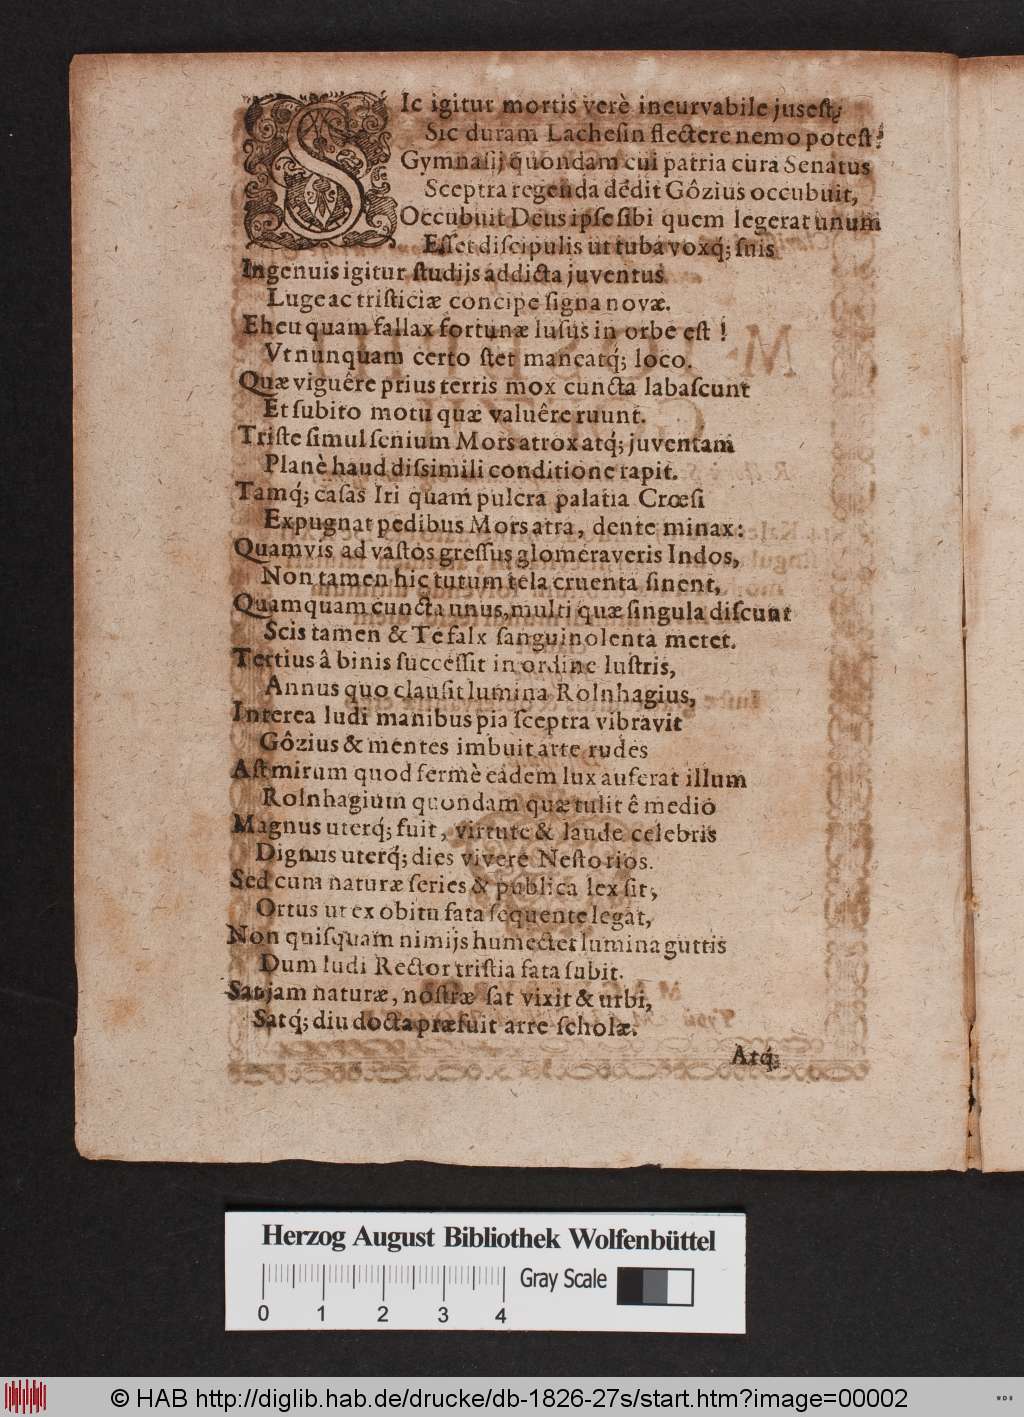 SIc igitur mortis verè incurvabile jus est;
Sic duram Lachesin flectere nemo potest!
Gymnasij quondam cui patria cura Senatus
Sceptra regenda dedit Gôzius occubuit,
Occubuit Deus ipse sibi quem legerat unum
Esset discipulis ut tuba voxq́; suis
Ingenuis igitur studijs addicta juventus
Luge ac tristiciæ concipe signa novæ.
Eheu quam fallax fortunæ lusus in orbe est !
Vt nunquam certo stet maneatq́; loco.
Quæ viguêre prius terris mox cuncta labascunt
Et subito motu quæ valuêre ruunt.
Triste simul senium Mors atrox atq́; juventam
Planè haud dissimili conditione rapit.
Tamq́; casas Iri quam pulcra palatia Crœsi
Expugnat pedibus Mors atra, dente minax:
Quamvis ad vastos gressus glomeraveris Indos,
Non tamen hic tutum tela cruenta sinent,
Quamquam cuncta unus, multi quæ singula discunt
Scis tamen & Te falx sanguinolenta metet.
Tertius â binis successit in ordine lustris,
Annus quo clausit lumina Rolnhagius,
Interea ludi manibus pia sceptra vibravit
Gôzius & mentes imbuit arte rudes
Ast mirum quod fermè eâdem lux auferat illum
Rolnhagium quondam quæ tulit ê medio
Magnus uterq́; fuit, virtute & laude celebris
Dignus uterq́; dies vivere Nestorios.
Sed cum naturæ series & publica lex sit,
Ortus ut ex obitu fata sequente legat,
Non quisquam nimijs humectet lumina guttis
Dum ludi Rector tristia fata subit.
Sat jam naturæ, nostræ sat vixit & urbi,
Satq́; diu docta præfuit arte scholæ.
Atq́;
Herzog August Bibliothek Wolfenbüttel
Gray Scale
0 1 2 3 4
© HAB http://diglib.hab.de/drucke/db-1826-27s/start.htm?image=00002